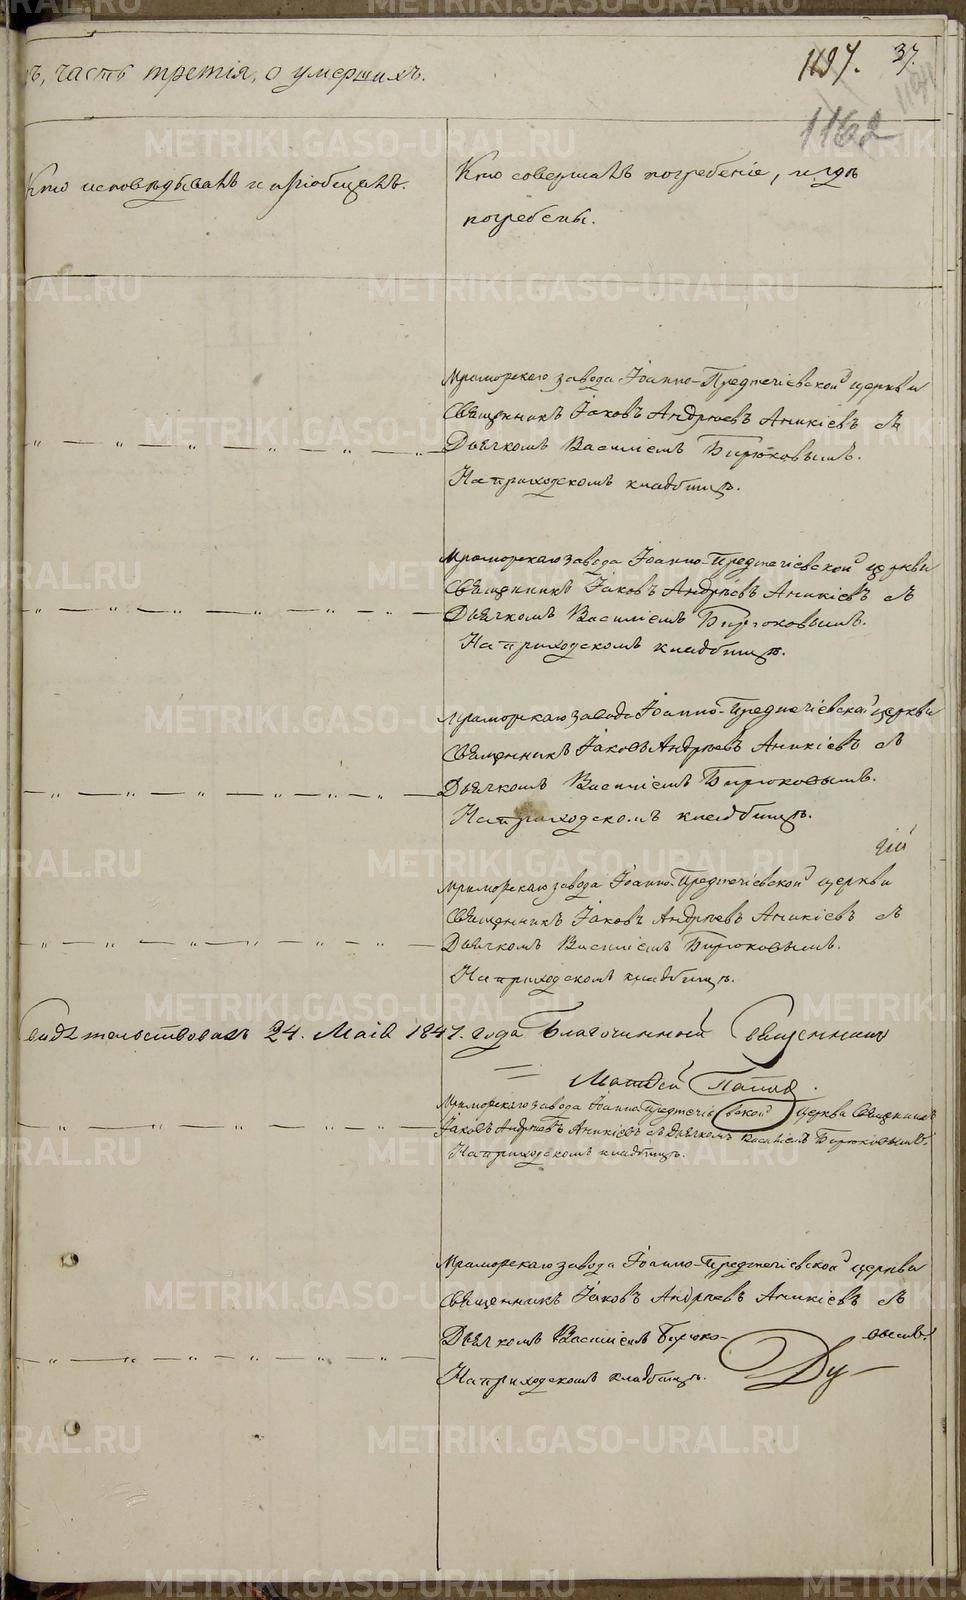 ъ, часть третія, о умершихъ.
1197. 37.
1162
Кто исповѣдывалъ и пріобщалъ.
Кто совершалъ погребеніе, и гдѣ
погребены.
Мраморскаго завода Іоанно-Предтечіевской церкви
Священникъ Іаковъ Андреевъ Аникіевъ съ
Дьячкомъ Василіемъ Бирюковымъ.
На приходскомъ кладбищѣ.
Мраморскаго завода Іоанно-Предтечіевской церкви
Священникъ Іаковъ Андреевъ Аникіевъ съ
Дьячкомъ Василіемъ Бирюковымъ.
На приходскомъ кладбищѣ.
Мраморскаго завода Іоанно-Предтечіевской церкви
Священникъ Іаковъ Андреевъ Аникіевъ съ
Дьячкомъ Василіемъ Бирюковымъ.
На приходскомъ кладбищѣ.
Мраморскаго завода Іоанно-Предтечіевской церкви
Священникъ Іаковъ Андреевъ Аникіевъ съ
Дьячкомъ Василіемъ Бирюковымъ.
На приходскомъ кладбищѣ.
Свидѣтельствовалъ 24. Маія 1847. года Благочинной Священникъ
Матвей Поповъ.
Мраморскаго завода Іоанно-Предтечіевской церкви Священникъ
Іаковъ Андреевъ Аникіевъ съ Дьячкомъ Василіемъ Бирюковымъ.
На приходскомъ кладбищѣ.
Мраморскаго завода Іоанно-Предтечіевской церкви
Священникъ Іаковъ Андреевъ Аникіевъ съ
Дьячкомъ Василіемъ Бирюко-вымъ.
На приходскомъ кладбищѣ. Ду
METRIKI.GASO-URAL.RU